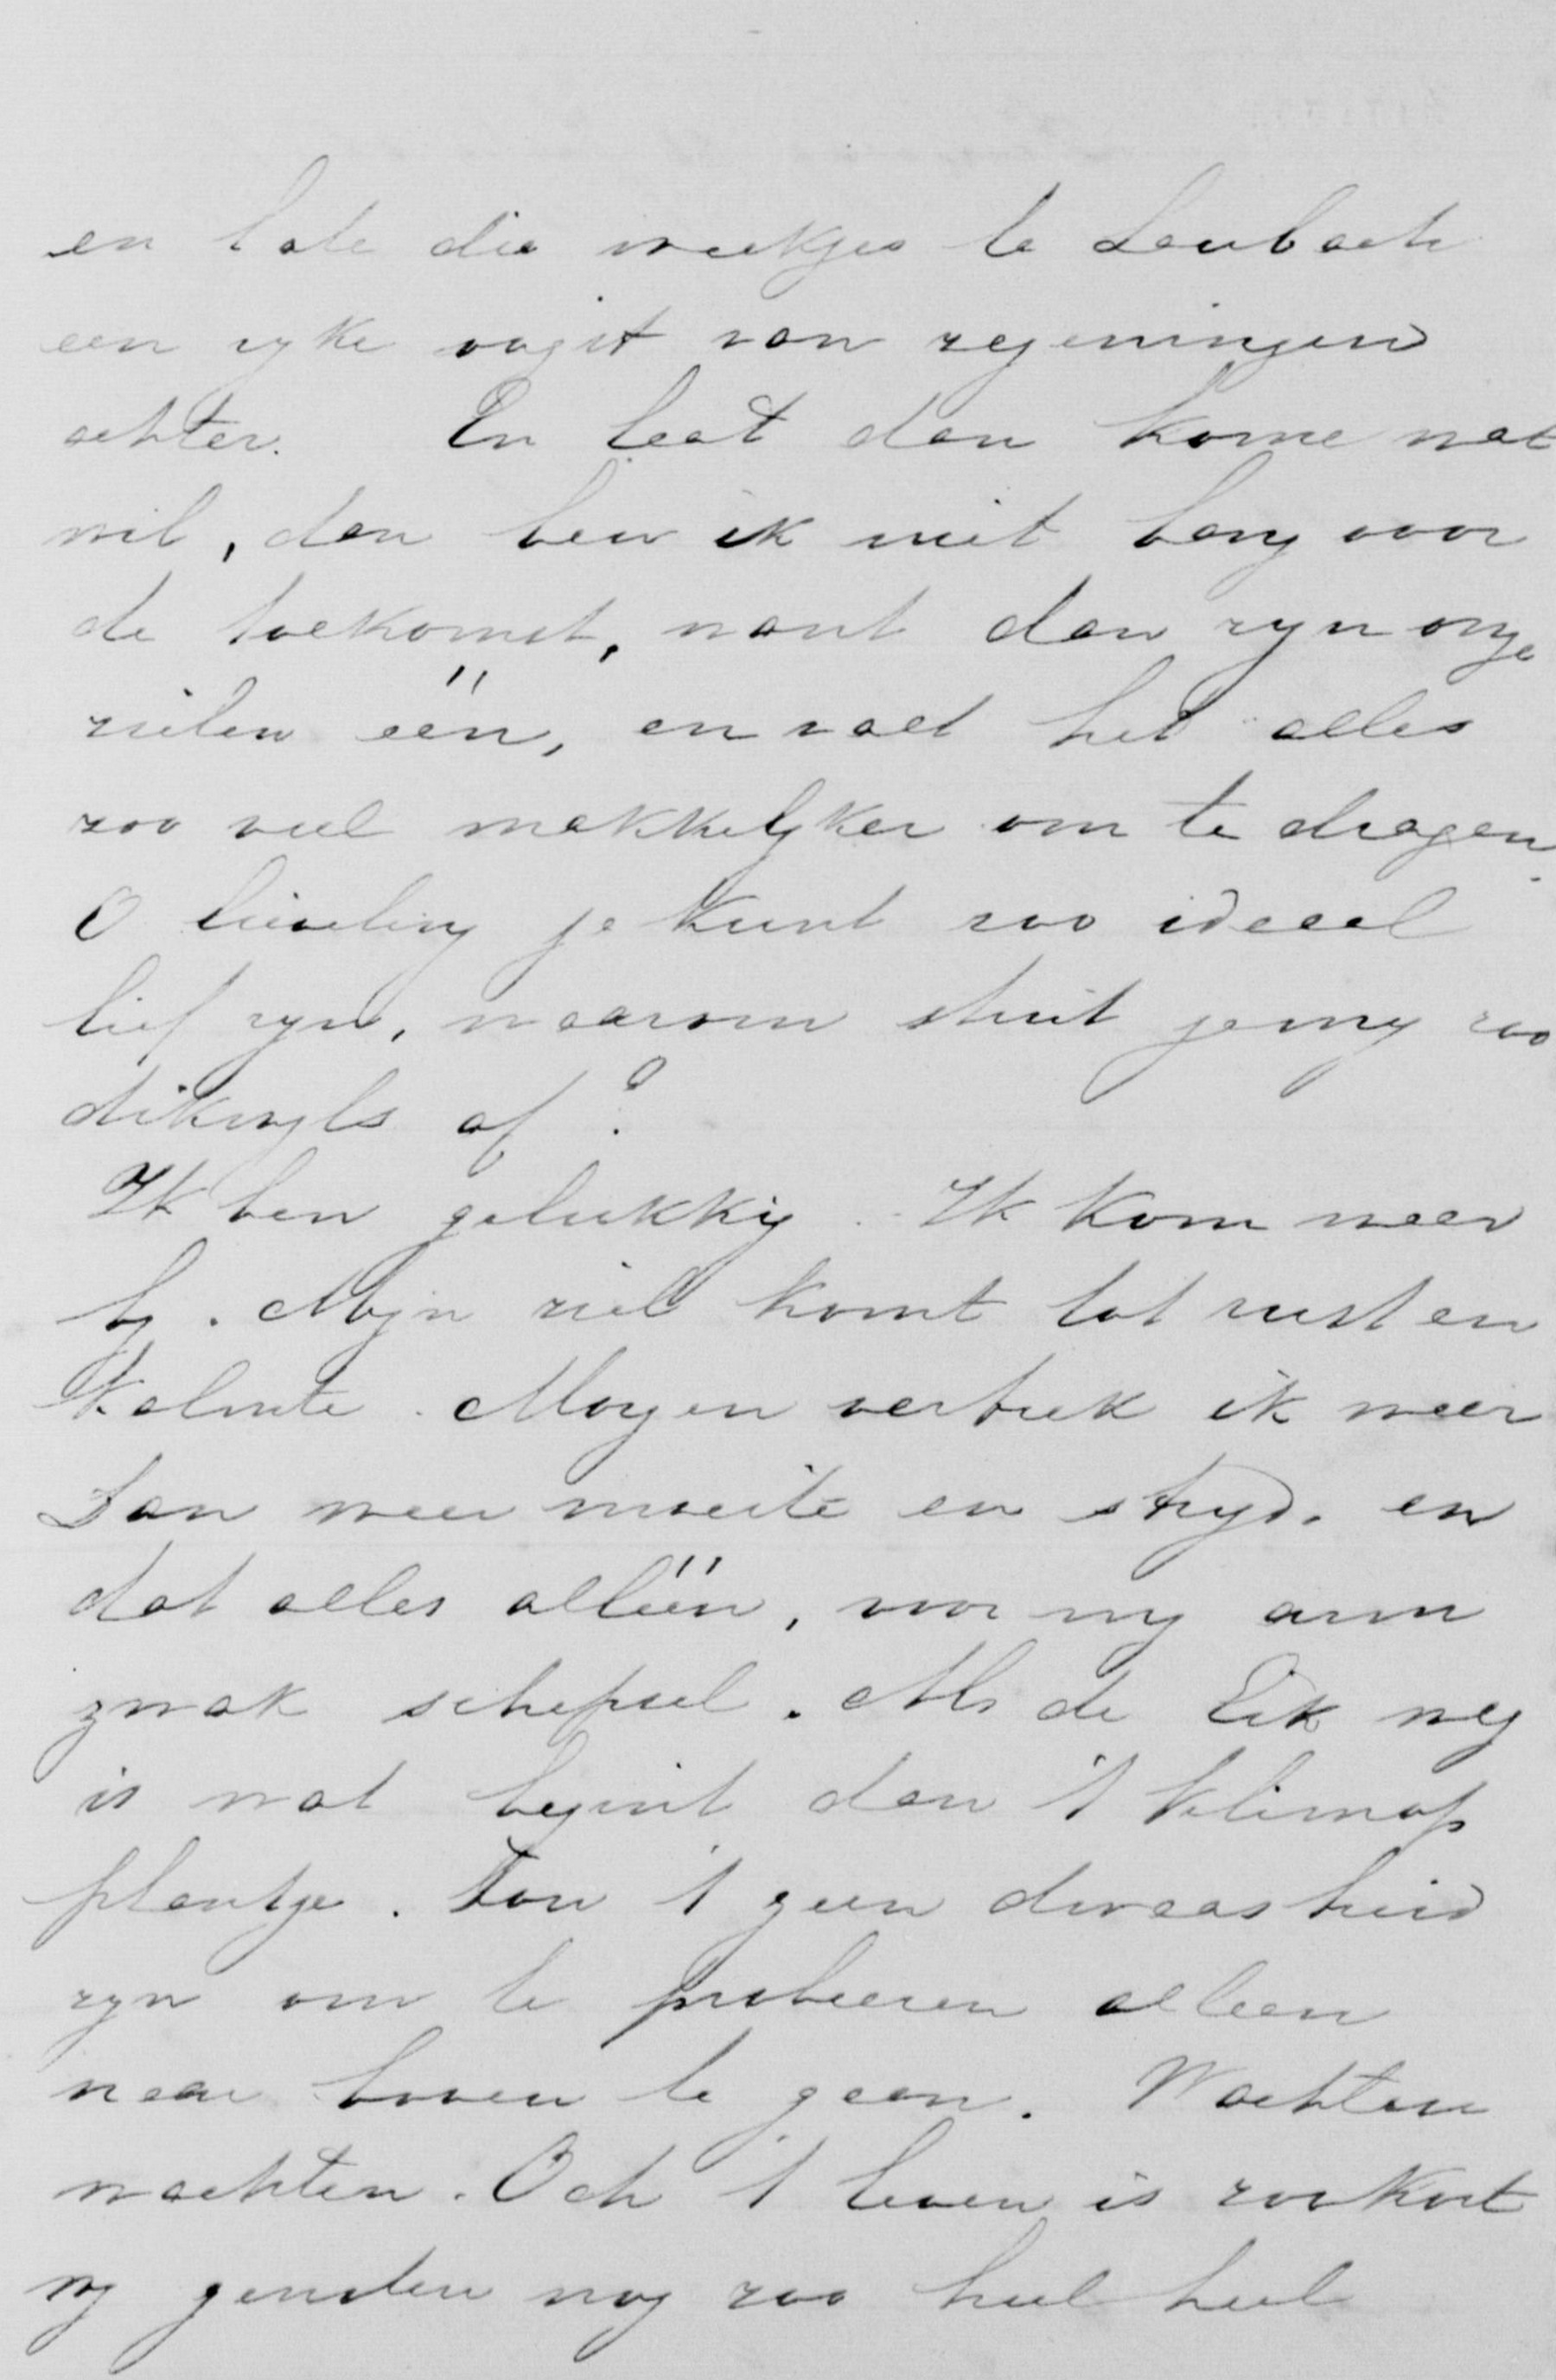 en late die weekjes te Laubach
een ryke oogst van zegeningen
achter. En laat dan kome wat
wil, dan ben ik niet bang voor
de toekomst, want dan zyn onze
zielen één, en valt het alles
zoo veel makkelyker om te dragen.
O lieveling je kunt zoo ideaal
lief zyn, waarom stuit je my zoo
dikwyls af?
Ik ben gelukkig. Ik kom weer
by. Mijn ziel komt tot rust en
kalmte. Morgen vertrek ik weer
Dan weer moeite en stryd. en
dat alles alléén, voor my arm
zwak schepsel. Als de Eik weg
is wat begint dan 't klimop
plantje. Zou 't geen dwaasheid
zyn om te probeeren alleen
naar boven te gaan. Wachten
wachten. Och 't leven is zoo kort
wy genoten nog zoo heel heel